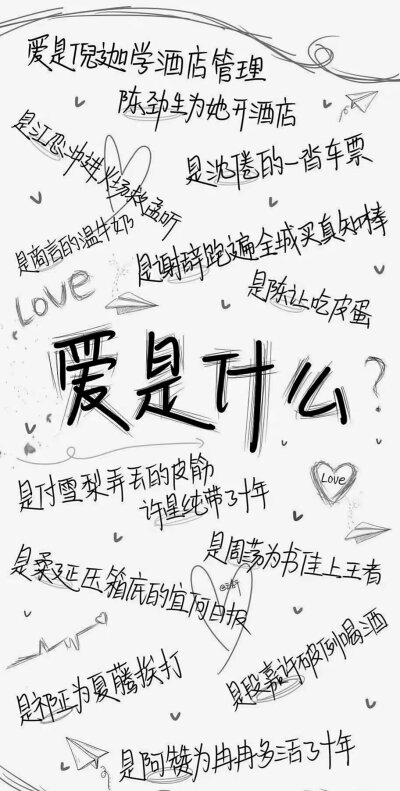 爱是倪迦学酒店管理
陈劲生为她开酒店
是江忍冲进火场救孟听
是沈倦的一沓车票
是商言的温牛奶
是谢辞跑遍全城买真知棒
是陈让吃皮蛋
LOVE
爱是什么?
是付雪梨弄丢的皮筋
许星纯带了十年
Love
是周荡为书佳上王者
是柔延压箱底的宜河日报
是祁正为夏藤挨打
是段嘉许破例喝酒
是阿赞为冉冉多活了十年